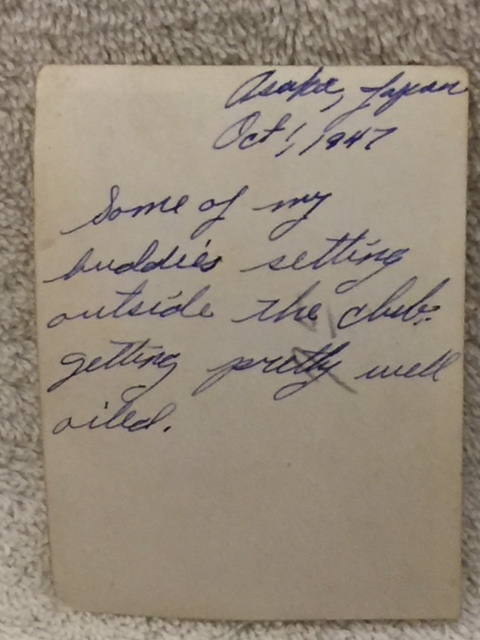 Asaka, Japan
Oct 1, 1947
Some of my
buddies setting
outside the club.
getting pretty well
oiled.